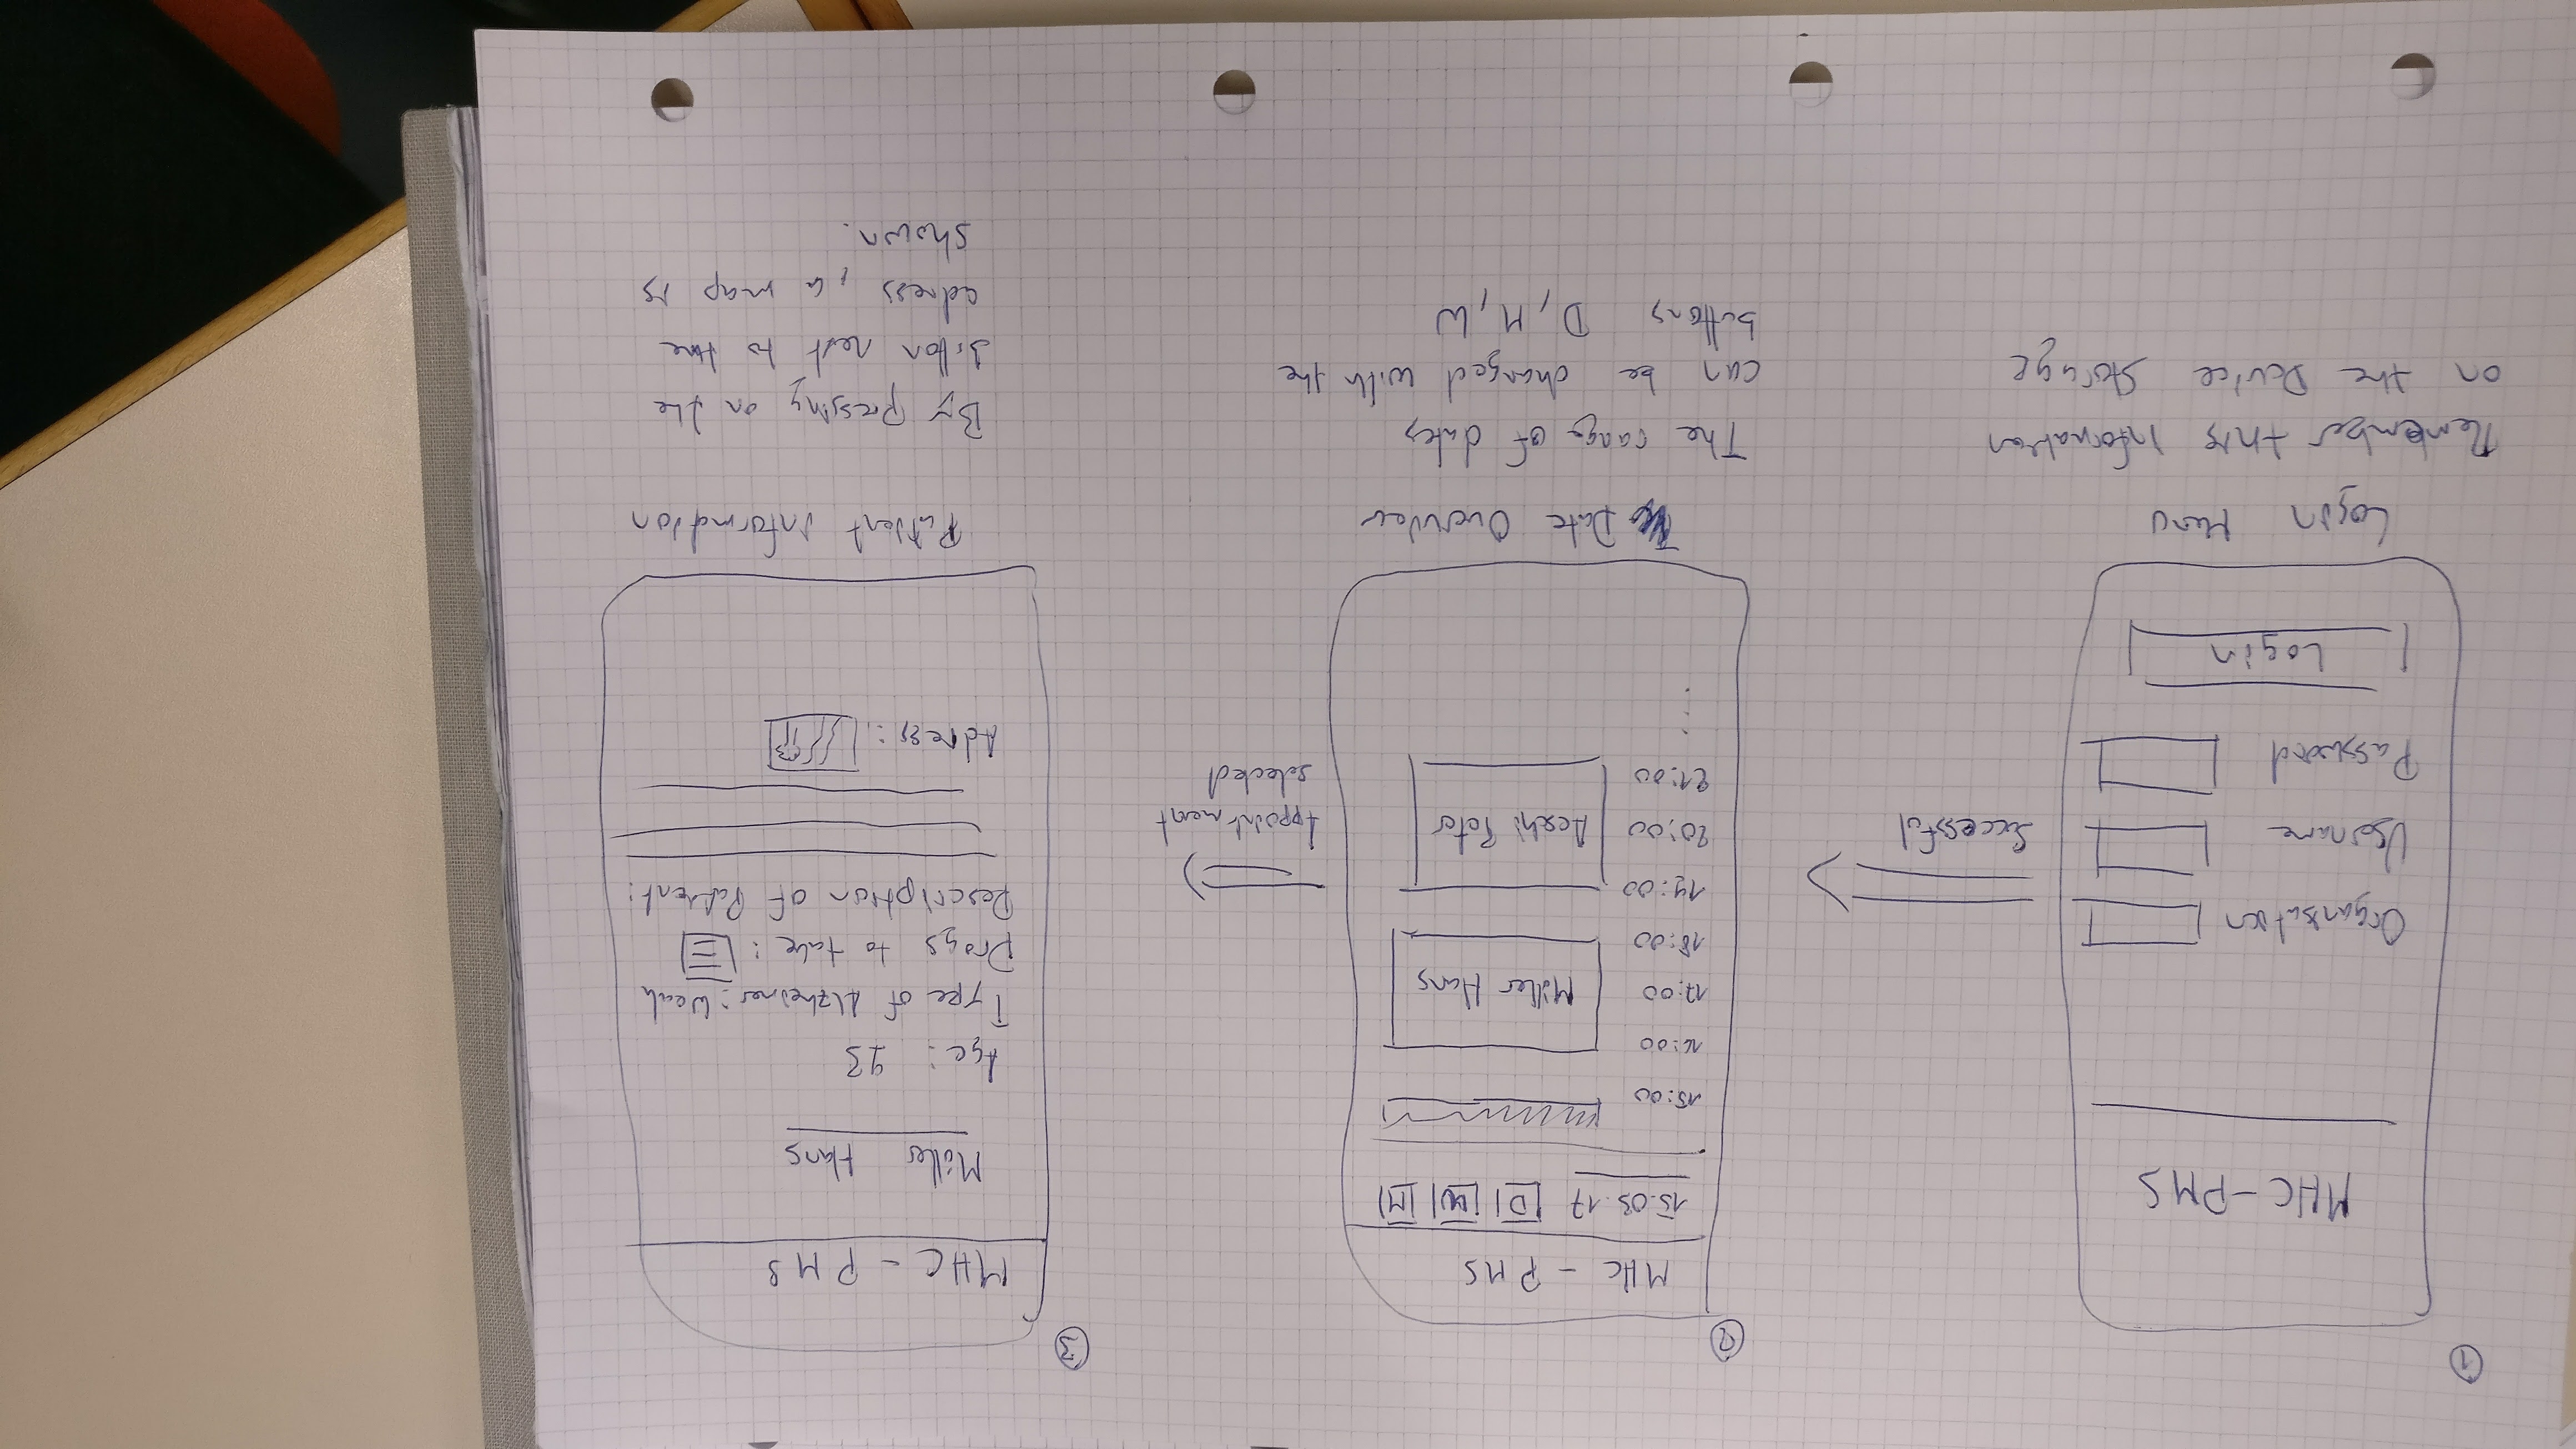 1
MHC-PMS
Organisation
Username
Password
Login
Successful
Login Menu
Remember this information
on the Device Storage
2
MHC - PMS
15.03.17 D W M
15:00
16:00
17:00 Müller Hans
18:00
19:00
20:00 Aeschi Peter
21:00
Appointment
selected
Date Overview
The range of dates
can be changed with the
buttons D, M, W
3
MHC - PMS
Müller Hans
Age: 93
Type of Alzheimer: Weak
Drogs to take:
Description of Patient:
Adress:
Patient information
By pressing on the
button next to the
adress, a map is
shown.